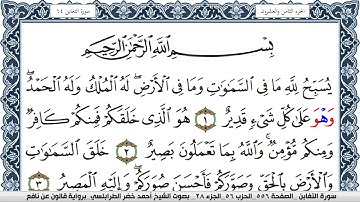 الجزء الثامن والعشرون
سورة التغابن ٦٤
بِسْمِ اللَّهِ الرَّحْمَٰنِ الرَّحِيمِ
يُسَبِّحُ لِلَّهِ مَا فِى السَّمَٰوَٰتِ وَمَا فِى الْأَرْضِ لَهُ الْمُلْكُ وَلَهُ الْحَمْدُ
وَهْوَ عَلَىٰ كُلِّ شَىْءٍ قَدِيرٌ ١ هُوَ الَّذِى خَلَقَكُمْ فَمِنكُمْ كَافِرٌ
وَمِنكُم مُّومِنٌ وَاللَّهُ بِمَا تَعْمَلُونَ بَصِيرٌ ٢ خَلَقَ السَّمَٰوَٰتِ
وَالْأَرْضَ بِالْحَقِّ وَصَوَّرَكُمْ فَأَحْسَنَ صُوَرَكُمْ وَإِلَيْهِ الْمَصِيرُ ٣
سورة التغابن الصفحة ٥٥٦ الحزب ٥٦ الجزء ٢٨ بصوت الشيخ أحمد خضر الطرابلسي برواية قالون عن نافع